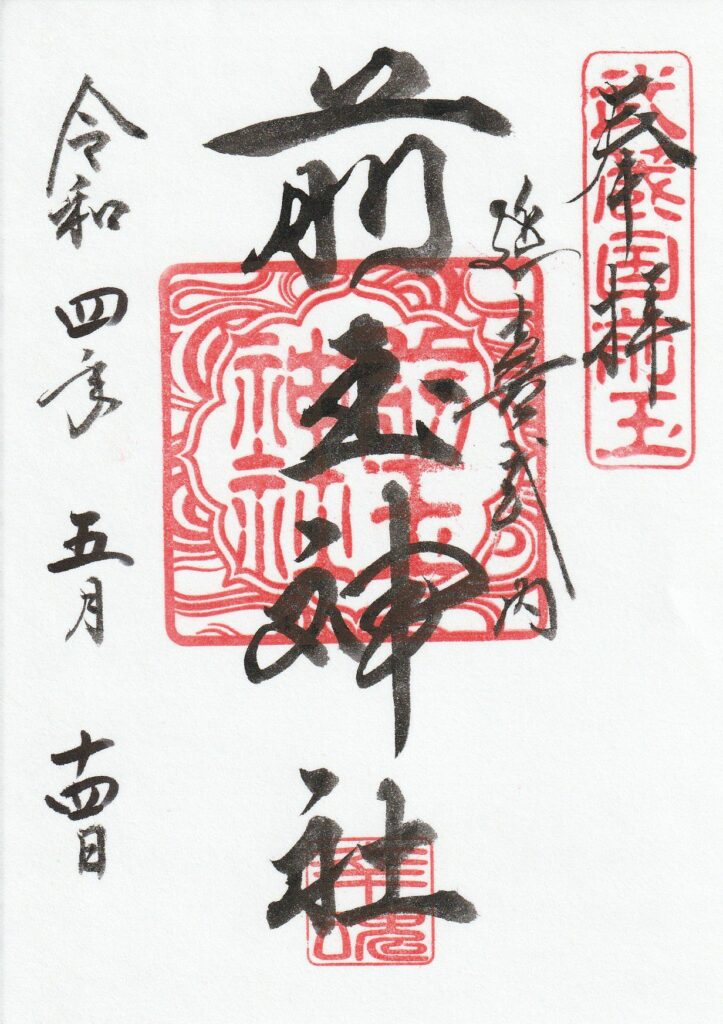 奉拝
武蔵国前玉
延喜式内
前玉神社
前玉神社
令和四年五月十四日